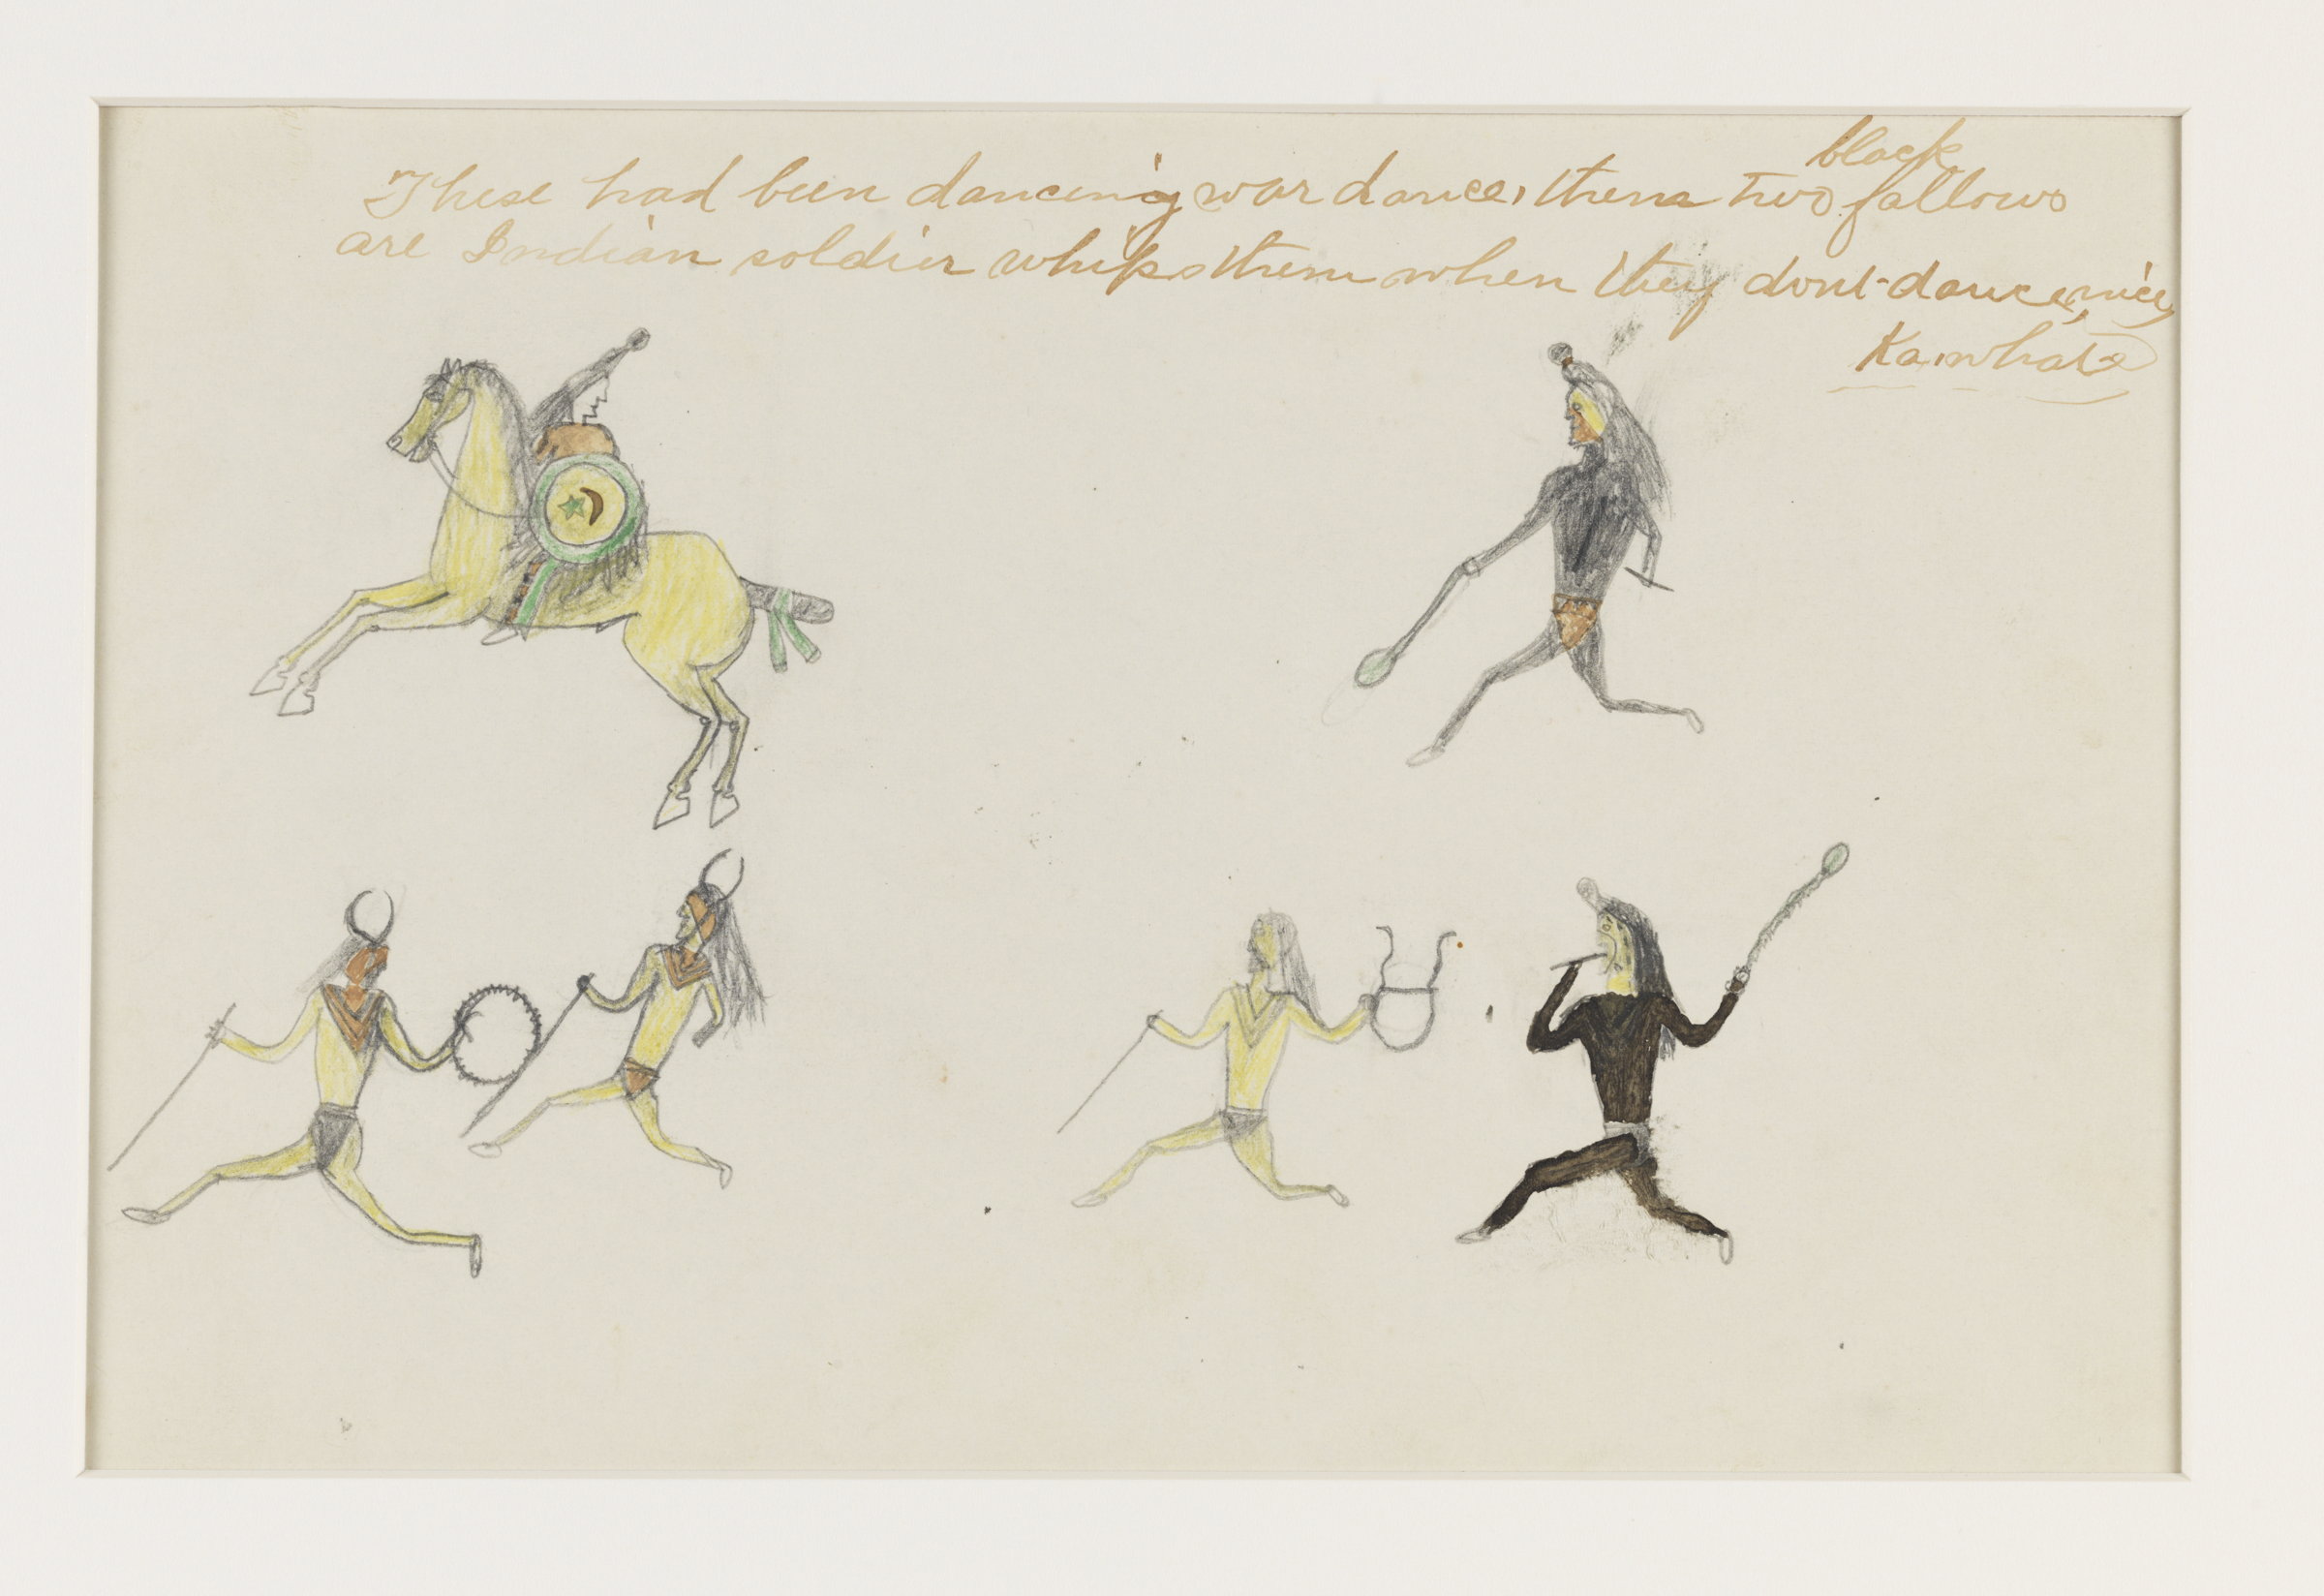 black
These had been dancing war dance, them two fallows
are Indian soldier whips them when they dont dance, nice,
Kawhate